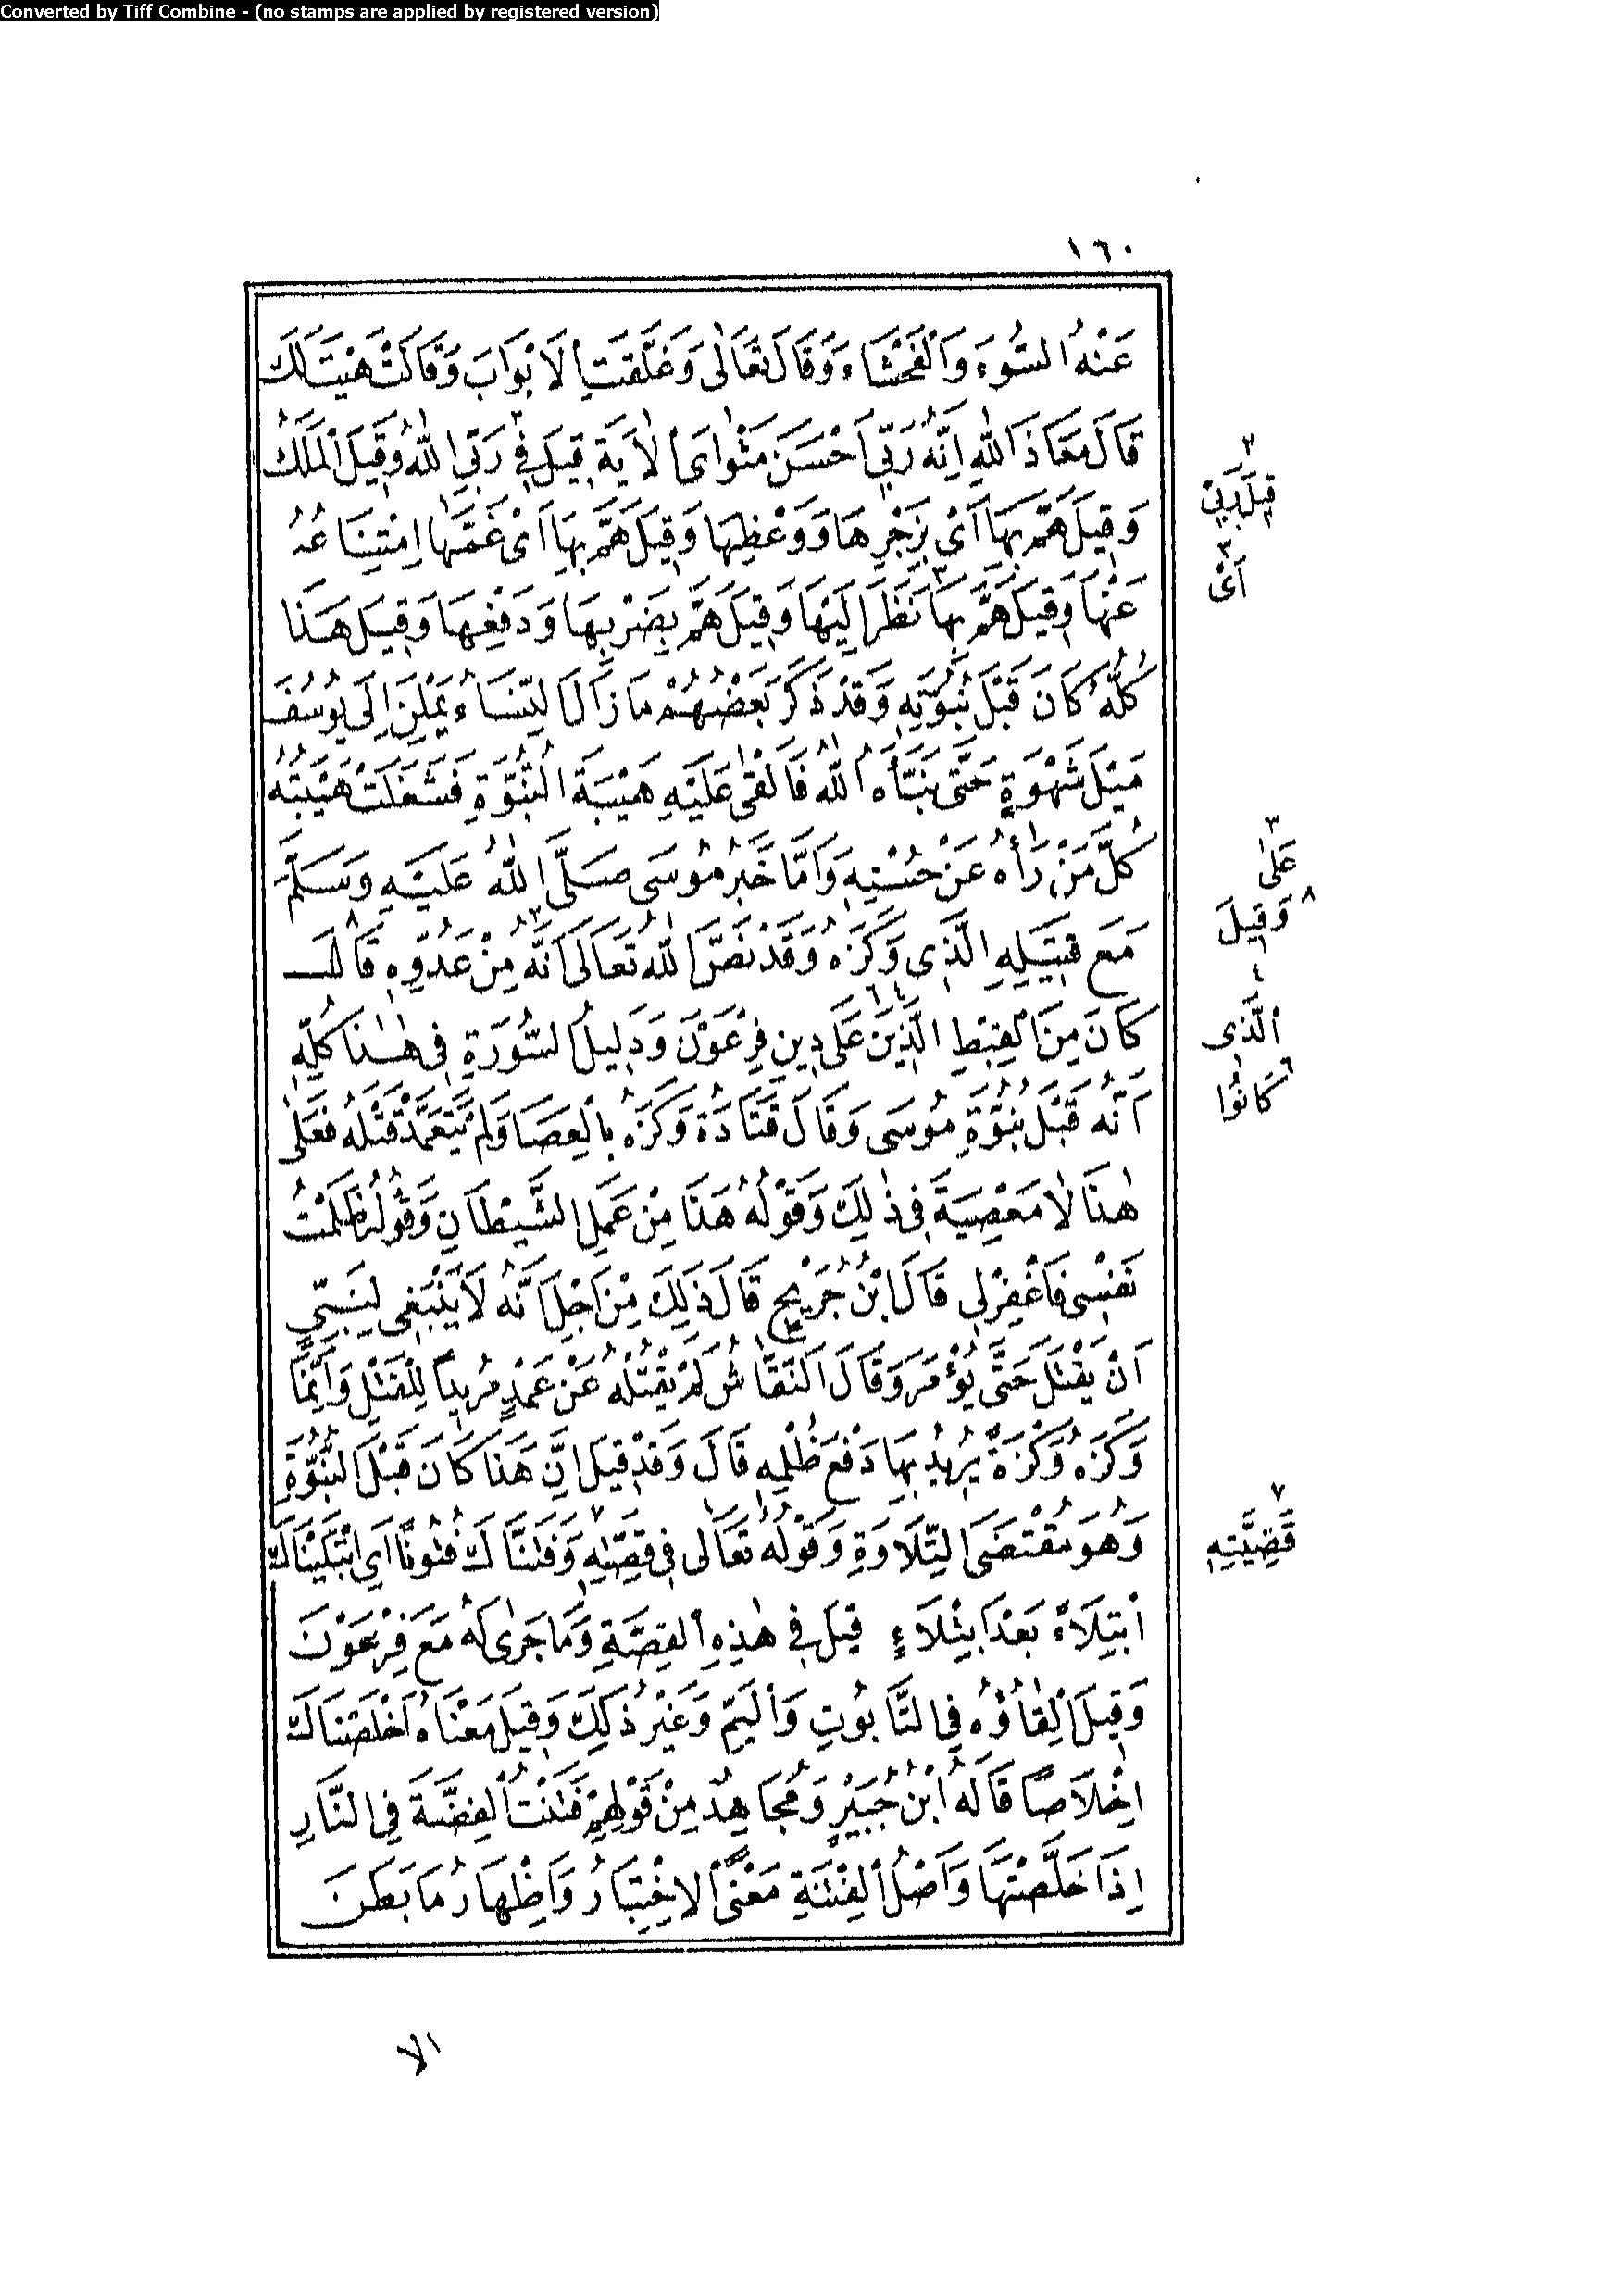 Converted by Tiff Combine - (no stamps are applied by registered version)
١٦٠
عَنْهُ السُّوءَ وَالْفَحْشَاءَ وَقَالَ تَعَالٰى وَغَلَّقَتِ الْاَبْوَابَ وَقَالَتْ هَيْتَ لَكَ
قَالَ مَعَاذَ اللهِ اِنَّهُ رَبّى اَحْسَنَ مَثْوَاىَ الْاٰيَةَ قِيلَ فِى رَبِّى اللهُ وَقِيلَ الْمَلِكُ
وَقِيلَ هَمَّ بِهَا اَىْ بِزَجْرِهَا وَوَعْظِهَا وَقِيلَ هَمَّ بِهَا اَىْ غَمَّهَا امْتِنَاعُهُ
عَنْهَا وَقِيلَ هَمَّ بِهَا نَظَرَ اِلَيْهَا وَقِيلَ هَمَّ بِضَرْبِهَا وَدَفْعِهَا وَقِيلَ هَذَا
كُلُّهُ كَانَ قَبْلَ نُبُوَّتِهِ وَقَدْ ذَكَرَ بَعْضُهُمْ مَا زَالَ النِّسَاءُ يَمِلْنَ اِلَى يُوسُفَ
مَيْلَ شَهْوَةٍ حَتَّى نَبَّأَهُ اللهُ فَاَلْقٰى عَلَيْهِ هَيْبَةَ النُّبُوَّةِ فَشَغَلَتْ هَيْبَتُهُ
كُلَّ مَنْ رَأٰهُ عَنْ حُسْنِهِ وَاَمَّا خَبَرُ مُوسَى صَلَّى اللهُ عَلَيْهِ وَسَلَّمَ
مَعَ قَتِيلِهِ الَّذِى وَكَزَهُ وَقَدْ نَصَّ اللهُ تَعَالَى اَنَّهُ مِنْ عَدُوِّهِ قَالَ
كَانَ مِنَ الْقِبْطِ الَّذِينَ عَلَى دِينِ فِرْعَوْنَ وَدَلِيلُ السُّورَةِ فِى هٰذَا كُلِّهِ
اَنَّهُ قَبْلَ نُبُوَّةِ مُوسَى وَقَالَ قَتَادَةُ وَكَزَهُ بِالْعَصَا وَلَمْ يَتَعَمَّدْ قَتْلَهُ فَعَلَى
هٰذَا لَا مَعْصِيَةَ فِى ذٰلِكَ وَقَوْلُهُ هَذَا مِنْ عَمَلِ الشَّيْطَانِ وَقَوْلُهُ ظَلَمْتُ
نَفْسِى فَاغْفِرْ لِى قَالَ ابْنُ جُرَيْجٍ قَالَ ذَلِكَ مِنْ اَجْلِ اَنَّهُ لَا يَنْبَغِى لِنَبِىٍّ
اَنْ يَقْتُلَ حَتَّى يُؤْمَرَ وَقَالَ النَّقَّاشُ لَمْ يَقْتُلْهُ عَنْ عَمْدٍ مُرِيداً لِلْقَتْلِ وَاِنَّمَا
وَكَزَهُ وَكْزَةً يُرِيدُ بِهَا دَفْعَ ظُلْمِهِ قَالَ وَقَدْ قِيلَ اِنَّ هَذَا كَانَ قَبْلَ النُّبُوَّةِ
وَهُوَ مُقْتَضَى التِّلَاوَةِ وَقَوْلُهُ تَعَالٰى فِى قِصَّتِهِ وَفَتَنَّاكَ فُتُونًا اَىِ ابْتَلَيْنَاكَ
ابْتِلَاءً بَعْدَ ابْتِلَاءٍ قِيلَ فِى هٰذِهِ الْقِصَّةِ وَمَا جَرٰى لَهُ مَعَ فِرْعَوْنَ
وَقِيلَ اِلْقَاؤُهُ فِى التَّابُوتِ وَالْيَمِّ وَغَيْرُ ذَلِكَ وَقِيلَ مَعْنَاهُ اَخْلَصْنَاكَ
اِخْلَاصًا قَالَهُ ابْنُ جُبَيْرٍ وَمُجَاهِدٌ مِنْ قَوْلِهِمْ فَتَنْتُ الْفِضَّةَ فِى النَّارِ
اِذَا خَلَّصْتَهَا وَاَصْلُ الْفِتْنَةِ مَعْنَى الْاِخْتِبَارُ وَاِظْهَارُ مَا بَطَنَ
٢
٣
اَىْ
٢
عَلٰى
٨
وَقِيلَ
٤
الَّذِى
٦
كَانُوا
٧
قَضِيَّتِهِ
الا